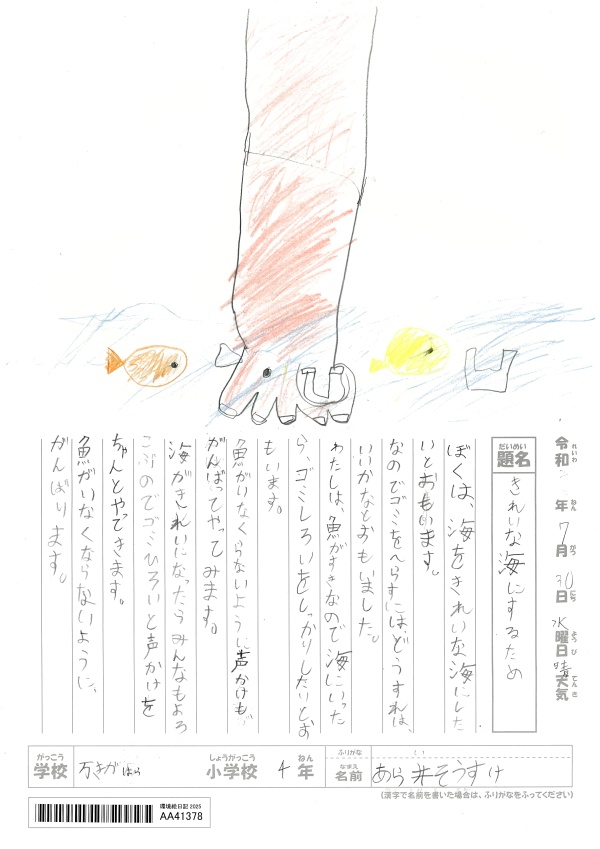 令和 年 7月 30日 水曜日 天気 晴
れいわ ねん がつ にち ようび てんき
だいめい
題名 きれいな海にするため
ぼくは、海をきれいな海にした
いとおもいます。
なのでゴミをへらすにはどうすれば、
いいかなとおもいました。
わたしは、魚がすきなので海にいった
ら、ゴミしろいをしっかりしたいとお
もいます。
魚がいなくらないように声かけも
がんばってやってみます。
海がきれいになったらみんなもよろ
こぶのでゴミひろいと声かけを
ちゃんとやてきます。
魚がいなくならないように、
がんばります。
がっこう しょうがっこう ねん ふりがな
学校 万きがはら 小学校 4年
なまえ
名前 あら井そうすけ
(漢字で名前を書いた場合は、ふりがなをふってください)
環境絵日記 2025
AA41378